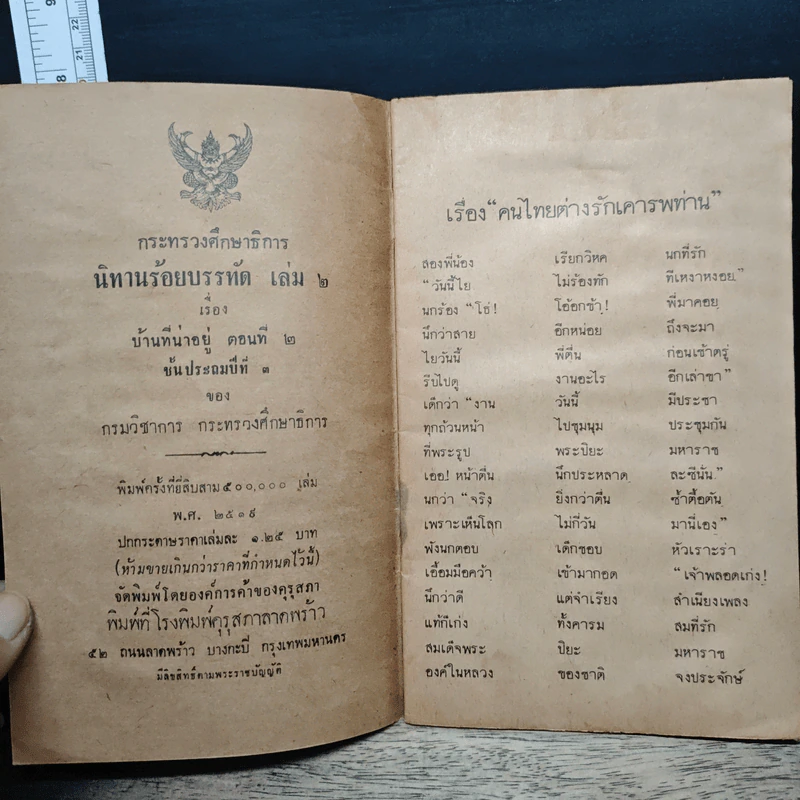 กระทรวงศึกษาธิการ
นิทานร้อยบรรทัด เล่ม ๒
เรื่อง
บ้านที่น่าอยู่ ตอนที่ ๒
ชั้นประถมปีที่ ๓
ของ
กรมวิชาการ กระทรวงศึกษาธิการ
พิมพ์ครั้งที่ยี่สิบสาม ๕๐๐,๐๐๐ เล่ม
พ.ศ. ๒๕๑๙
ปกกระดาษราคาเล่มละ ๑.๒๕ บาท
(ห้ามขายเกินกว่าราคาที่กำหนดไว้นี้)
จัดพิมพ์โดยองค์การค้าของคุรุสภา
พิมพ์ที่โรงพิมพ์คุรุสภาลาดพร้าว
๕๒ ถนนลาดพร้าว บางกะปิ กรุงเทพมหานคร
มีลิขสิทธิ์ตามพระราชบัญญัติ
เรื่อง “คนไทยต่างรักเคารพท่าน”
สองพี่น้อง เรียกวิหค นกที่รัก
“วันนี้ไย ไม่ร้องทัก ทีเหงาหงอย”
นกร้อง “โฮ่! โอ้อกข้า! พี่มาคอย
นึกว่าสาย อีกหน่อย ถึงจะมา
ไยวันนี้ พี่ตื่น ก่อนเช้าตรู่
รีบไปดู งานอะไร อีกเล่าขา”
เด็กว่า “งาน วันนี้ มีประชา
ทุกถ้วนหน้า ไปชุมนุม ประชุมกัน
ที่พระรูป พระปิยะ มหาราช
เออ! หน้าตื่น นึกประหลาด ละซีนั่น”
นกว่า “จริง ยิ่งกว่าตื่น ซ้ำตื้อตัน
เพราะเห็นโลก ไม่กี่วัน มานี่เอง”
ฟังนกตอบ เด็กชอบ หัวเราะร่า
เอื้อมมือคว้า เข้ามากอด “เจ้าพลอดเก่ง!
นึกว่าดี แต่จำเรียง สำเนียงเพลง
แท้ก็เก่ง ทั้งคารม สมที่รัก
สมเด็จพระ ปิยะ มหาราช
องค์ในหลวง ของชาติ จงประจักษ์
9
8
23
22
21
20